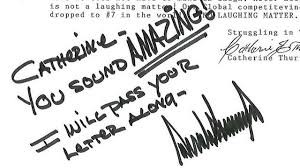 is not a laughing matter
global competitiven
dropped to #7 in the
LAUGHING MATTER.
Struggling in
Catherine Thur
CATHERINE -
YOU SOUND AMAZING!
I WILL PASS YOUR
LETTER ALONG -